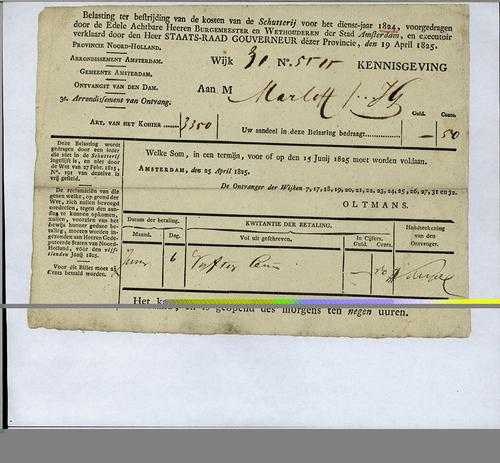 Belasting ter bestrijding van de kosten van de Schutterij voor het dienst-jaar 1824, voorgedragen
door de Edele Achtbare Heeren BURGEMEESTER EN WETHOUDEREN der Stad Amsterdam, en executoir
verklaard door den Heer STAATS-RAAD GOUVERNEUR dezer Provincie, den 19 April 1825.
PROVINCIE NOORD-HOLLAND.
ARRONDISSEMENT AMSTERDAM.
Wijk 30 No. KENNISGEVING
GEMEENTE AMSTERDAM.
ONTVANGST VAN DEN DAM.
Aan M
3e. Arrondissement van Ontvang:
Guld. Cents.
ART. VAN HET KOHIER 3350
Uw aandeel in deze Belasting bedraagt — 50
Deze Belasting wordt
gedragen door een ieder
die niet in de Schutterij
ingelijfd is, en niet door
de Wet van 27 Febr. 1815
No. 191 van dezelve is
vrij gesteld.
De reclamatiën van die
genen welke, op grond der
Wet, zich zullen bevoegd
oordeelen, tegen den aan-
slag te kunnen opkomen,
zullen, voorzien van de
bewijs hunner gedane be-
taling, moeten worden in-
gezonden aan Heeren Gede-
puteerde Staten van Noord-
Holland, vóór den vijf-
tienden Junij 1825.
Voor dit Billet moet 2½
Cents betaald worden.
Welke Som, in een termijn, voor of op den 15 Junij 1825 moet worden voldaan.
AMSTERDAM, den 25 April 1825.
De Ontvanger der Wijken 7, 17, 18, 19, 20, 21, 22, 23, 24, 25, 26, 27, 31 en 32.
OLTMANS.
Datum der betaling.
KWITANTIE DER BETALING.
Handteekening
van den
Ontvanger.
Maand. Dag.
Vol uit geschreven.
in Cijfers.
Guld. Cents.
Junij 6 Vijftig Cents — 50
Het
en is geopend des morgens ten negen uuren.